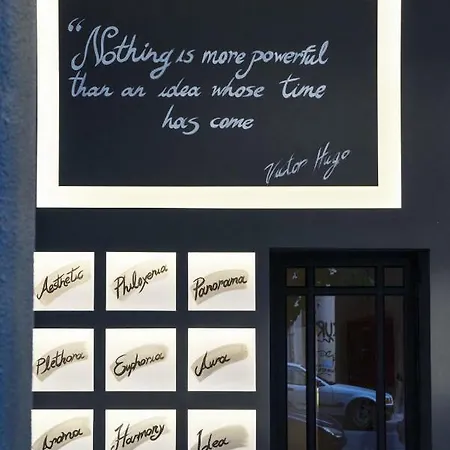 “Nothing is more powerful
than an idea whose time
has come
Victor Hugo
Aesthetic
Philoxenia
Panorama
Plethora
Euphoria
Aura
Aroma
Harmony
Idea